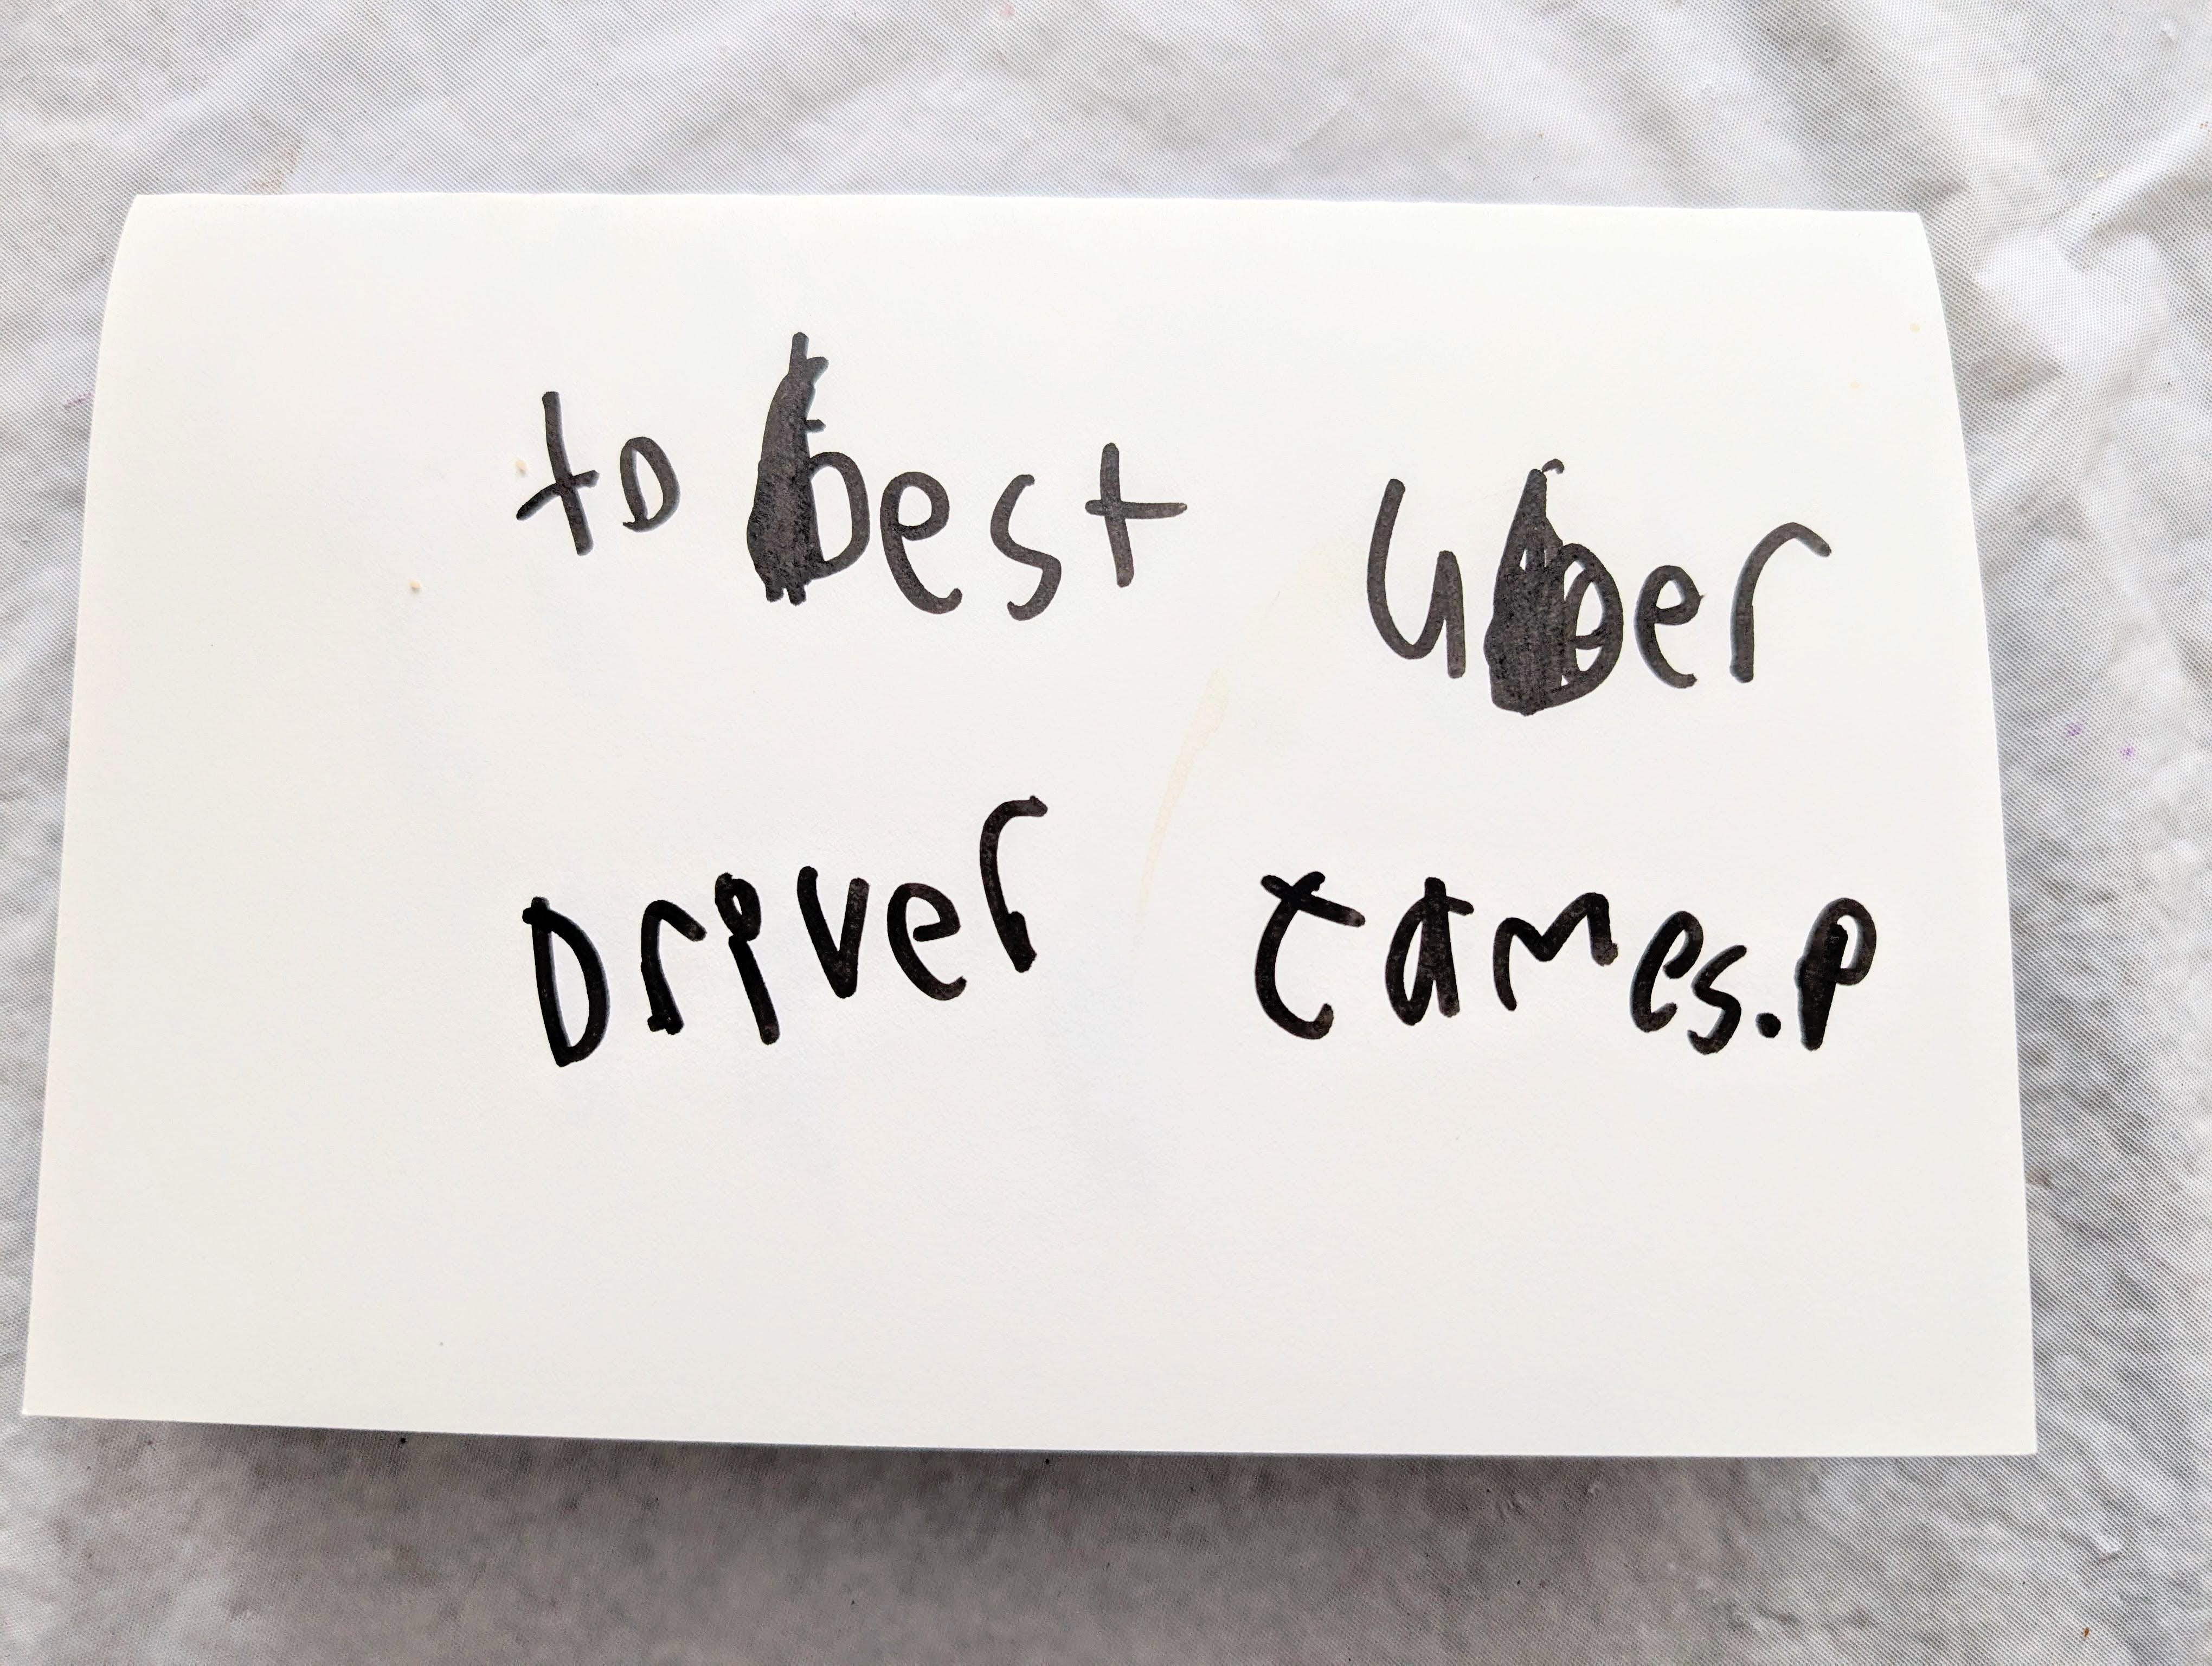 to best uber
Driver James.P